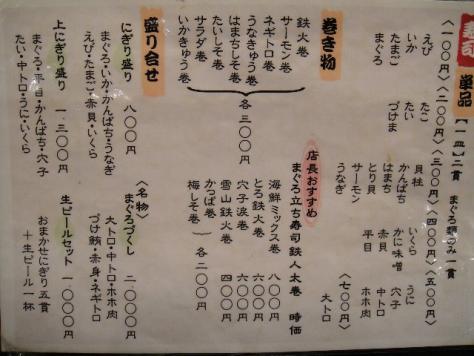 寿司
単品
【一皿】二貫 まぐろ類のみ一貫
〈一〇〇円〉〈二〇〇円〉〈三〇〇円〉〈四〇〇円〉〈五〇〇円〉
えび たこ 貝柱 いくら うに
いか たい かんぱち かに味噌 穴子
たまご づけま はまち 赤貝 中トロ
まぐろ とり貝 平目 ホホ肉
サーモン
うなぎ
〈七〇〇円〉
大トロ
巻き物
鉄火巻
サーモン巻
ネギトロ巻
うなきゅう巻
はまちしそ巻
たいしそ巻
サラダ巻
いかきゅう巻
各三〇〇円
店長おすすめ
まぐろ立ち寿司鉄人太巻 時価
海鮮ミックス巻 八〇〇円
とろ鉄火巻 六〇〇円
穴子波巻 六〇〇円
雪山鉄火巻 四〇〇円
かっぱ巻
梅しそ巻
各二〇〇円
盛り合せ
にぎり盛り 八〇〇円
まぐろ・いか・かんぱち・うなぎ
えび・たまご・赤貝・いくら
上にぎり盛り 一、三〇〇円
まぐろ・平目・かんぱち・穴子
たい・中トロ・うに・いくら
〈名物〉
まぐろづくし 二、〇〇〇円
大トロ・中トロ・ホホ肉
づけ鮪・赤身・ネギトロ
生ビールセット 一、〇〇〇円
おまかせにぎり五貫
+生ビール一杯